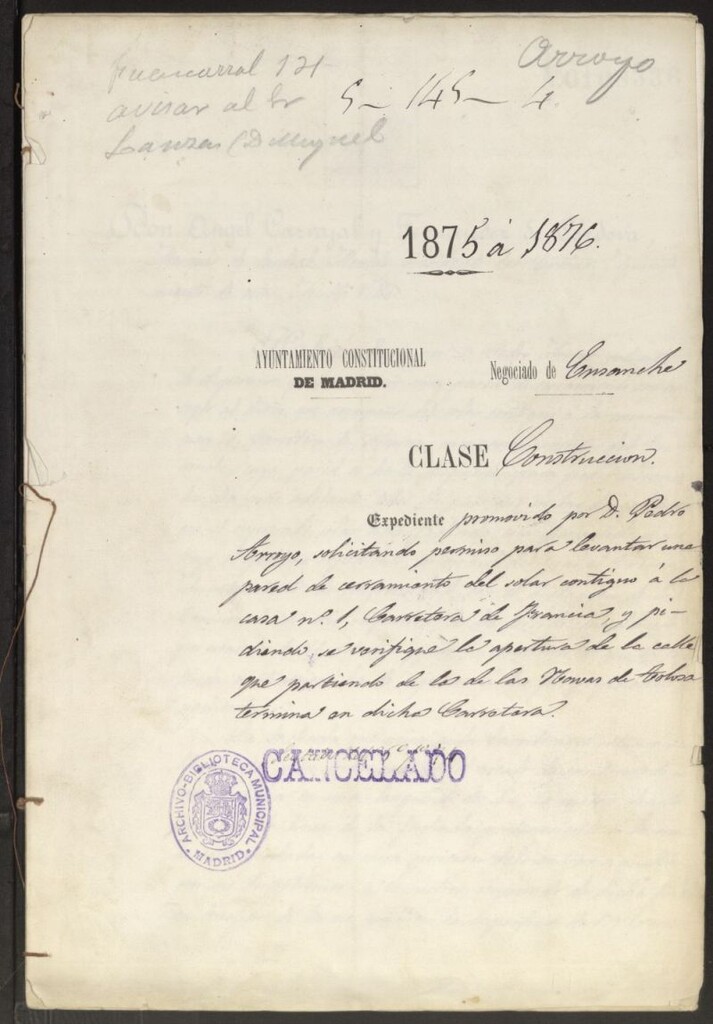 Fuencarral 121
avisar al Sr
Lanzas (D Miguel
Arroyo
5 - 145 - 4
1875 á 1876.
AYUNTAMIENTO CONSTITUCIONAL
DE MADRID.
Negociado de Ensanche
CLASE Construccion.
Expediente promovido por D. Pedro
Arroyo, solicitando permiso para levantar una
pared de cerramiento del solar contiguo á la
casa nº. 1, Carretera de Francia, y pi-
diendo se verifique la apertura de la calle
que partiendo de la de las Navas de Tolosa
termina en dicha Carretera.
CANCELADO
ARCHIVO-BIBLIOTECA MUNICIPAL
MADRID